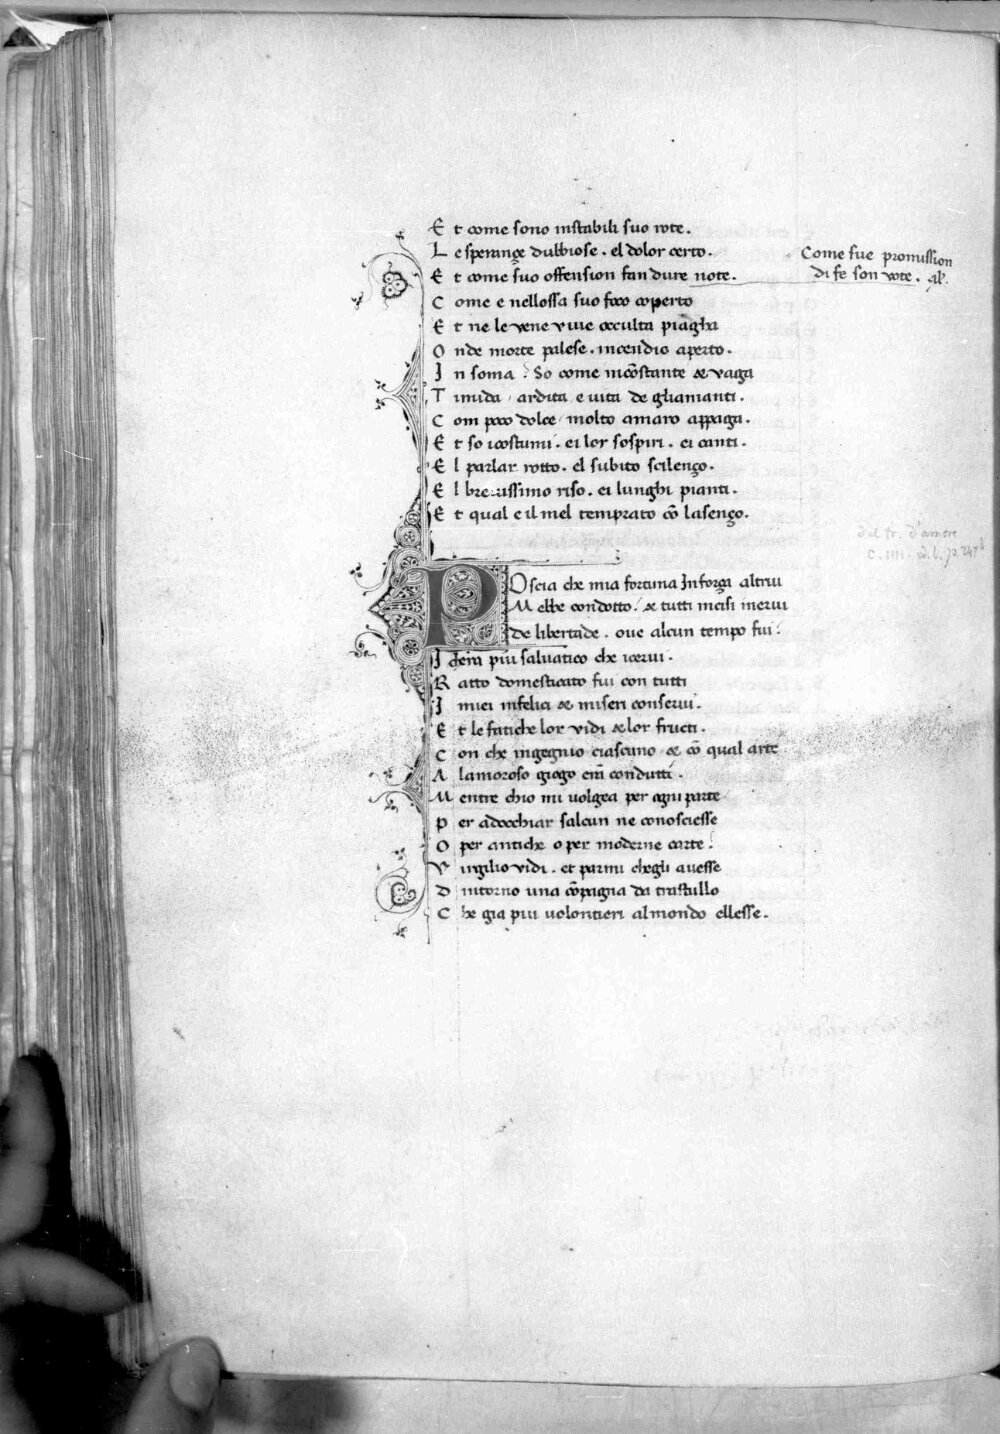 Et come sono instabili suo rote.
Le sperançe dubbiose. el dolor certo.
Et come suo offension fan dure note.
Come sue promission
di fe son vote. al'.
Come e nellossa suo foco coperto
Et ne le vene viue occulta piagha
Onde morte palese. incendio aperto.
In soma? So come incõstante & vaga
Timida / ardita / e uita de gliamanti.
Com poco dolce / molto amaro appaga.
Et so icostumi. ei lor sospiri. ei canti.
El parlar rotto. el subito scilenço.
El breuissimo riso. ei lunghi pianti.
Et qual e il mel temprato cõ lasenço.
POscia che mia fortuna Inforça altrui
Mebbe condotto / & tutti incisi inerui
de libertade. oue alcun tempo fui:
I chera piu saluatico che icerui.
Ratto domesticato fui con tutti
I miei infelici & miseri conserui.
Et le fatiche lor vidi & lor fructi.
Con che ingegnio ciascuno & cõ qual arte
Alamoroso giogo erã condutti.
Mentre chio mi uolgea per ogni parte
Per adocchiar salcun ne conosciesse
O per antiche o per moderne carte:
Virgilio vidi. et parmi chegli auesse
Dintorno una cõpagnia da trastullo
Che gia piu uolontieri almondo ellesse.